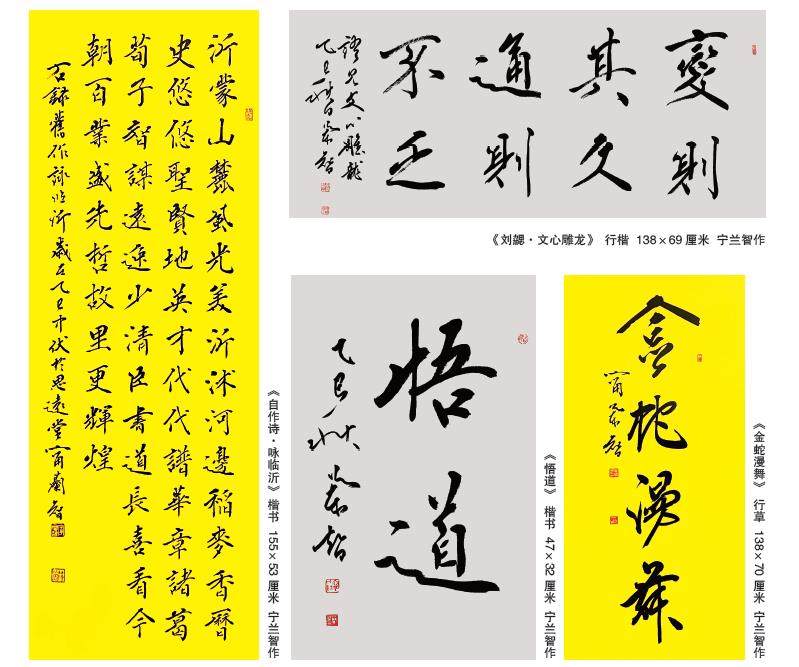 沂蒙山麓風光美沂沭河邊稻麥香曆
史悠悠聖賢地英才代代譜華章諸葛
荀子智謀遠逸少清臣書道長喜看今
朝百業盛先哲故里更輝煌
右録舊作詠临沂歲在乙巳中伏於思遠堂甯蘭智
《自作诗·咏临沂》 楷书 155×53厘米 宁兰智作
變則
其久
通則
不乏
文心雕龍
乙巳秋月蘭智
《刘勰·文心雕龙》 行楷 138×69厘米 宁兰智作
悟道
乙巳秋
蘭智
《悟道》 楷书 47×32厘米 宁兰智作
金蛇漫舞
甯蘭智
《金蛇漫舞》 行草 138×70厘米 宁兰智作